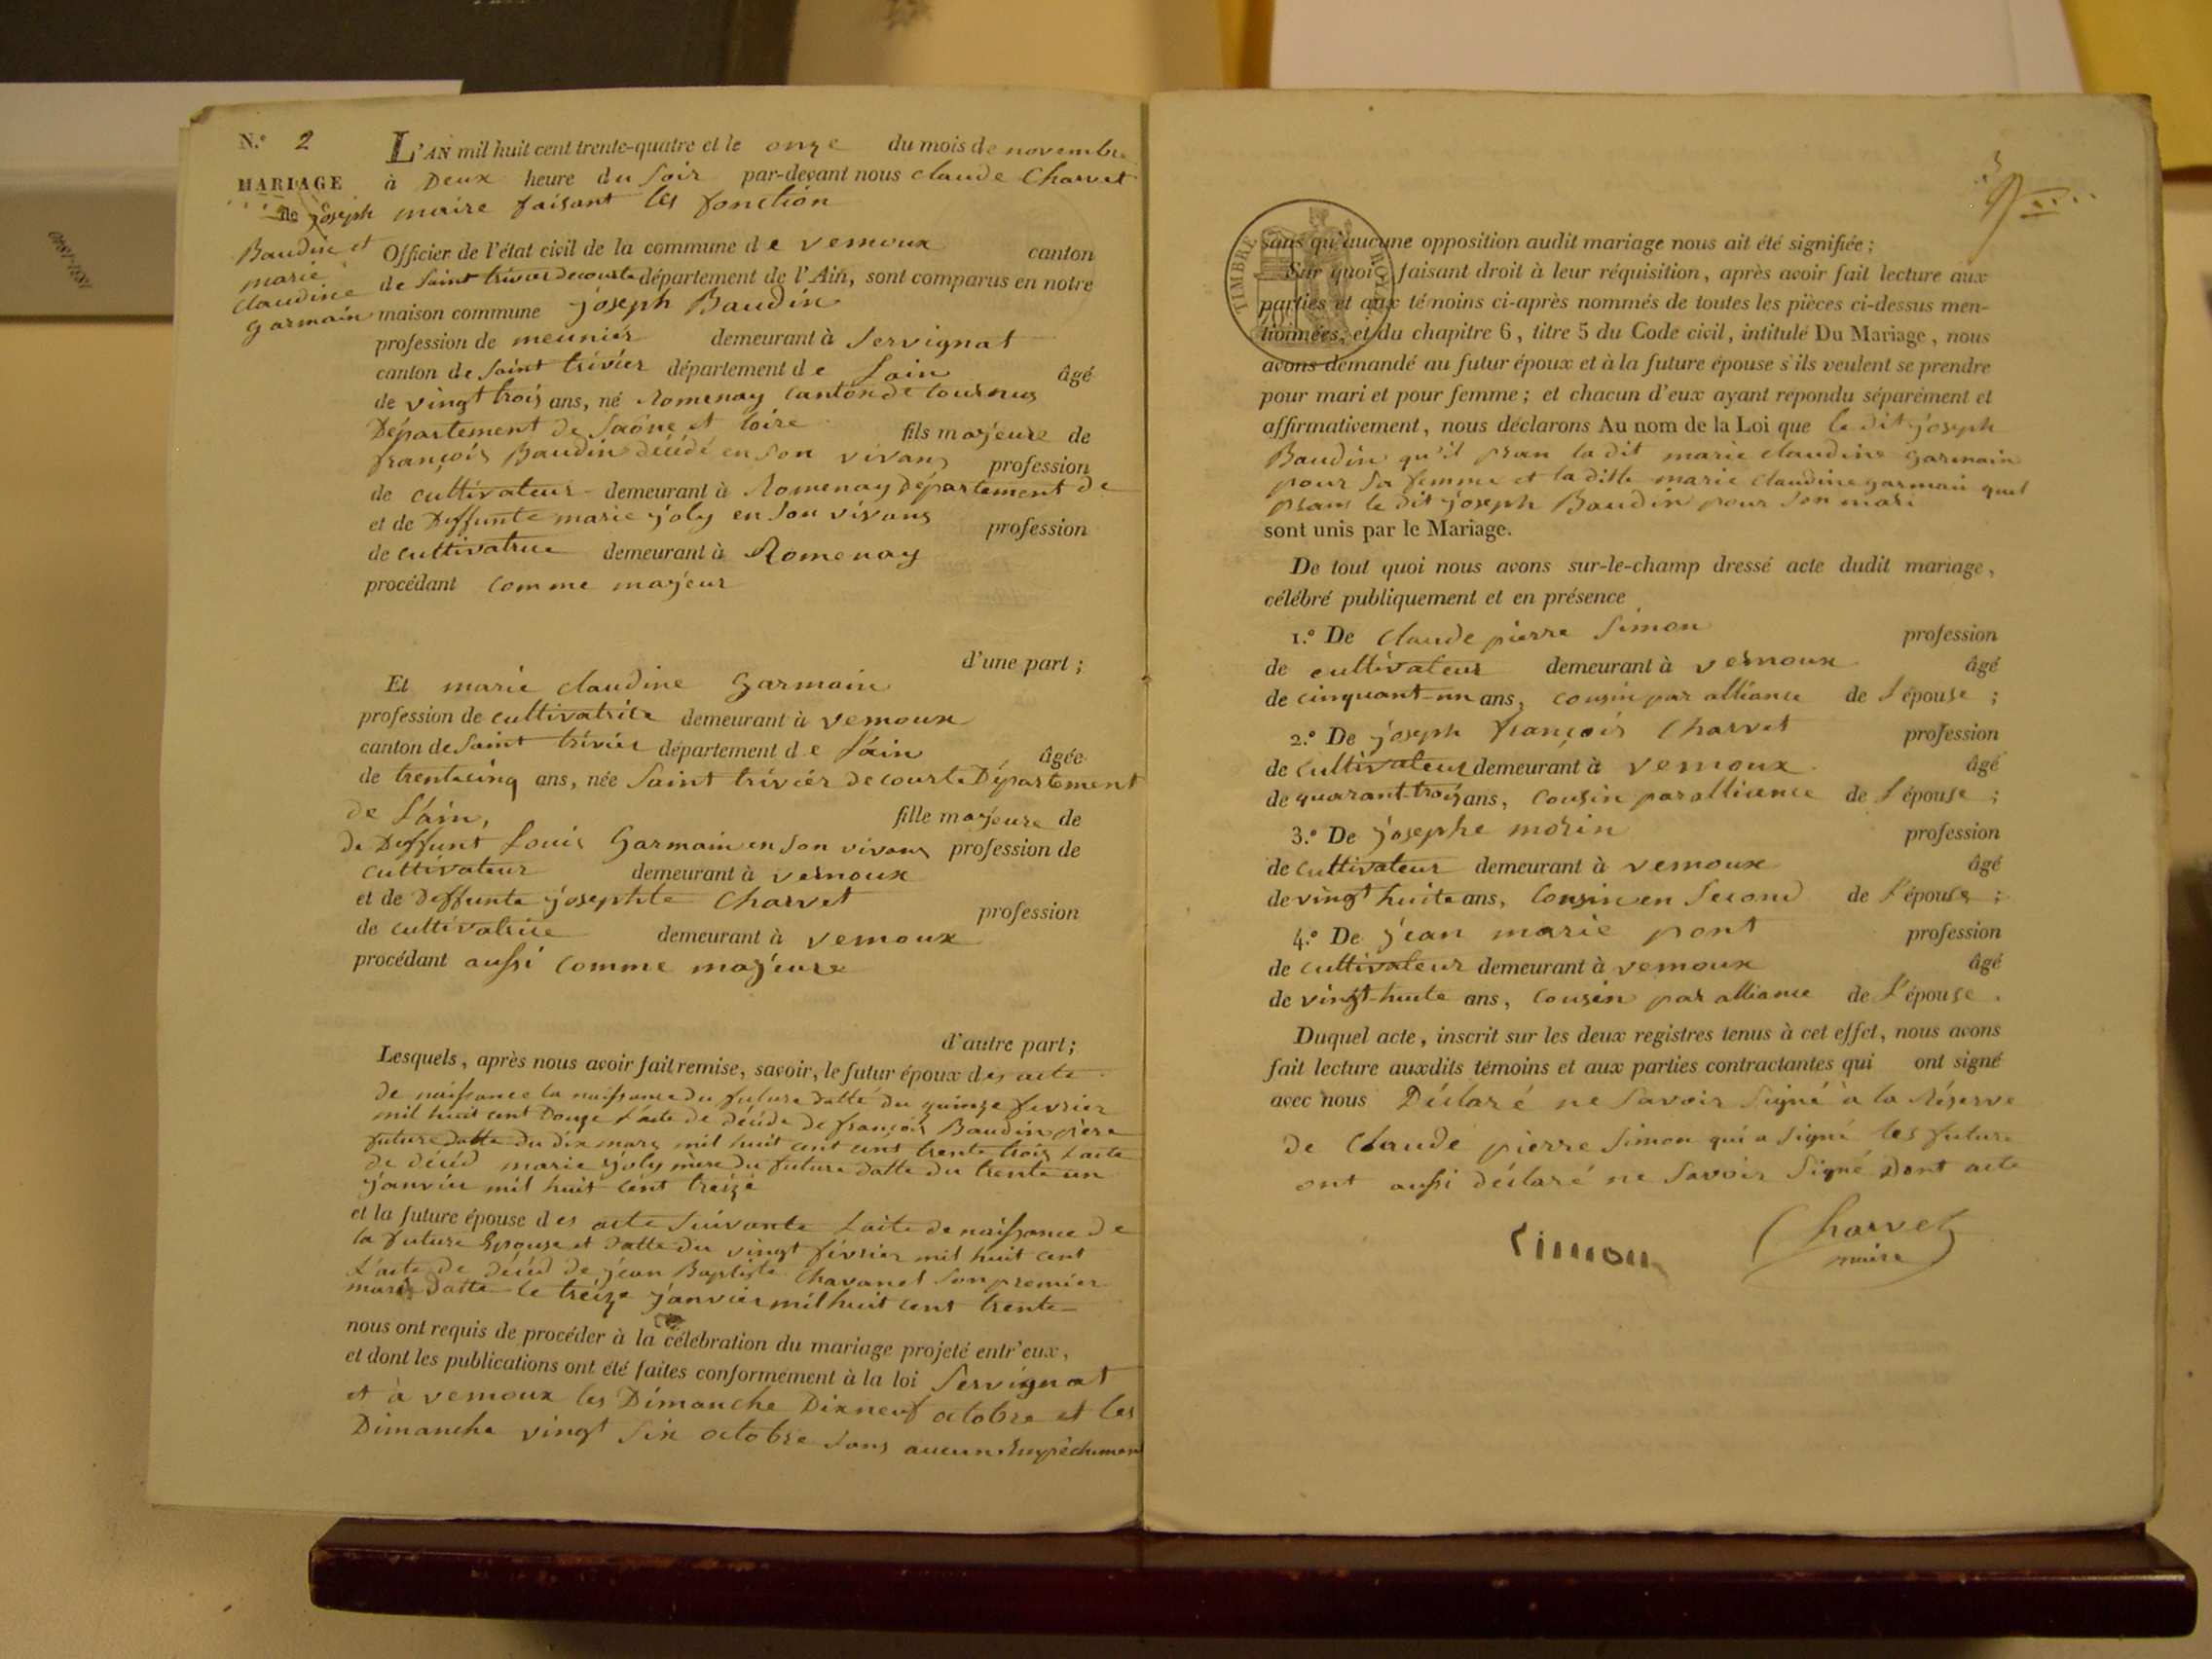 N.º 2
MARIAGE
de joseph
Baudin et
marie
claudine
garmain
L'AN mil huit cent trente-quatre et le onze du mois de novembre
à Deux heure du soir par-devant nous claude Charvet
maire faisant les fonction
Officier de l'état civil de la commune de vernoux canton
de saint trivier decourte département de l'Ain, sont comparus en notre
maison commune joseph Baudin
profession de meunier demeurant à servignat
canton de saint trivier département de Lain âgé
de vingt trois ans, né Romenay canton de tournus
Département de saône et loire fils majeure de
françois Baudin décédé en son vivans profession
de cultivateur demeurant à Romenay Département de
et de Deffunte marie joly en son vivans profession
de cultivatrice demeurant à Romenay
procédant comme majeur
d'une part ;
Et marie claudine garmain
profession de cultivatrice demeurant à vernoux
canton de saint trivier département de l'ain âgée
de trentecinq ans, née saint trivier decourte Département
de l'ain, fille majeure de
de Deffunt Louis garmain en son vivans profession de
cultivateur demeurant à vernoux
et de Deffunte josephte Charvet profession
de cultivatrice demeurant à vernoux
procédant aussi comme majeure
d'autre part ;
Lesquels, après nous avoir fait remise, savoir, le futur époux des acte
de naissance la naissance du future datté du quinze fevrier
mil huit cent Douze l'acte de décéde de françois Baudin père
future datte du dix mars mil huit cent cent trente trois Lacte
de décéd marie joly mère du future datte du trente un
janvier mil huit cent treize
et la future épouse des acte suivante Lacte de naissance de
la future Epouse et datte du vingt février mil huit cent
L'acte de décéd de jean Baptiste Chavanel son premier
mari Datte le treize janvier mil huit cent trente
nous ont requis de procéder à la célébration du mariage projeté entr'eux,
et dont les publications ont été faites conformément à la loi servignat
et à vernoux les Dimanche Dixneuf octobre et les
Dimanche vingt six octobre sans aucun Empêchement
TIMBRE ROYAL
sans qu'aucune opposition audit mariage nous ait été signifiée ;
Sur quoi faisant droit à leur réquisition, après avoir fait lecture aux
parties et aux témoins ci-après nommés de toutes les pièces ci-dessus men-
tionnées, et du chapitre 6, titre 5 du Code civil, intitulé Du Mariage, nous
avons demandé au futur époux et à la future épouse s'ils veulent se prendre
pour mari et pour femme ; et chacun d'eux ayant répondu séparément et
affirmativement, nous déclarons Au nom de la Loi que le dit joseph
Baudin qu'il pran la dit marie claudine garmain
pour sa femme et la ditte marie claudine garmain quel
prans le dit joseph Baudin pour son mari
sont unis par le Mariage.
De tout quoi nous avons sur-le-champ dressé acte dudit mariage,
célébré publiquement et en présence
1.º De claude pierre simon profession
de cultivateur demeurant à vernoux âgé
de cinquant-un ans, cousin par alliance de l'épouse ;
2.º De joseph françois Charvet profession
de cultivateur demeurant à vernoux âgé
de quarant-trois ans, cousin par allience de l'épouse ;
3.º De josephe morin profession
de cultivateur demeurant à vernoux âgé
de vingt huite ans, cousin en second de l'épouse ;
4.º De jean marie pont profession
de cultivateur demeurant à vernoux âgé
de vingt-huite ans, cousin par alliance de l'épouse.
Duquel acte, inscrit sur les deux registres tenus à cet effet, nous avons
fait lecture auxdits témoins et aux parties contractantes qui ont signé
avec nous Déclaré ne savoir signé à la Réserve
de Claude pierre simon qui a signé les future
ont aussi déclaré ne savoir signé Dont acte
Simon Charvet
maire